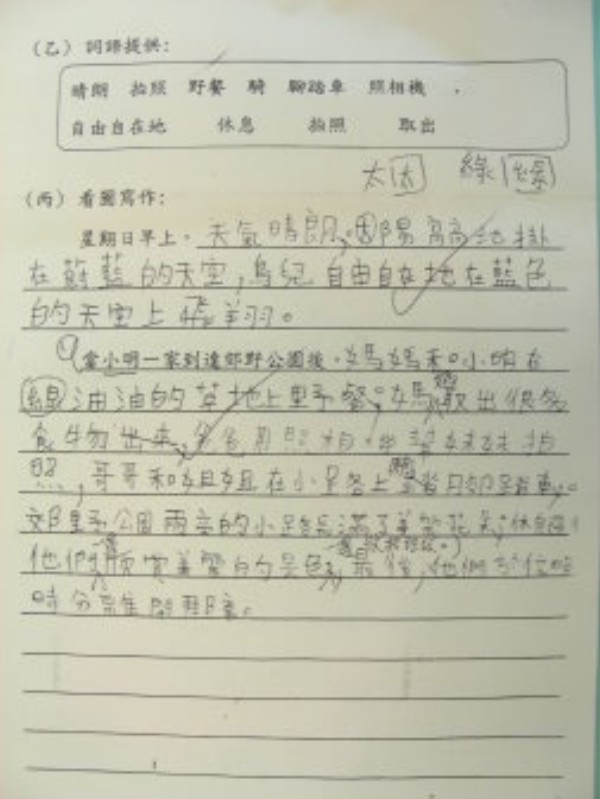 （乙） 詞語提供：
晴朗 拍照 野餐 騎 腳踏車 照相機 .
自由自在地 休息 拍照 取出
太 太 綠 綠
（丙） 看圖寫作：
星期日早上，天氣晴朗，陽高高地掛
在蔚藍的天空，鳥兒自由自在地在藍色
的天空上飛翔。
當小明一家到達郊野公園後，媽媽和小明在
油油的草地上野餐。媽取出很多
食物出來，照相拍妹妹拍
照，哥哥和姐姐在小徑上腳踏車。
郊野公園兩旁的小路長滿了美麗花休息
他們欣賞美麗的景色，最後，他們
時分離開